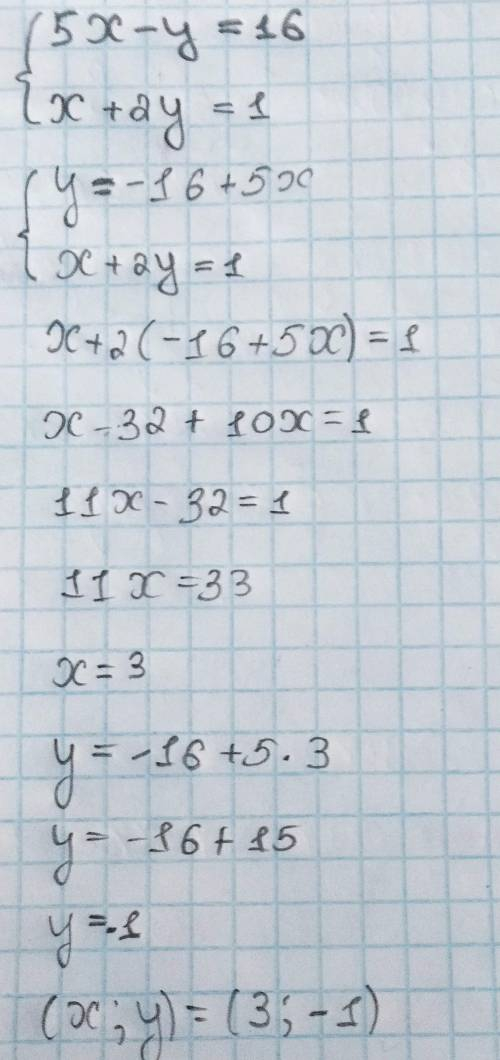 5x-y=16
x+2y=1
y=-16+5x
x+2y=1
x+2(-16+5x)=1
x-32+10x=1
11x-32=1
11x=33
x=3
y=-16+5·3
y=-16+15
y=-1
(x;y)=(3;-1)